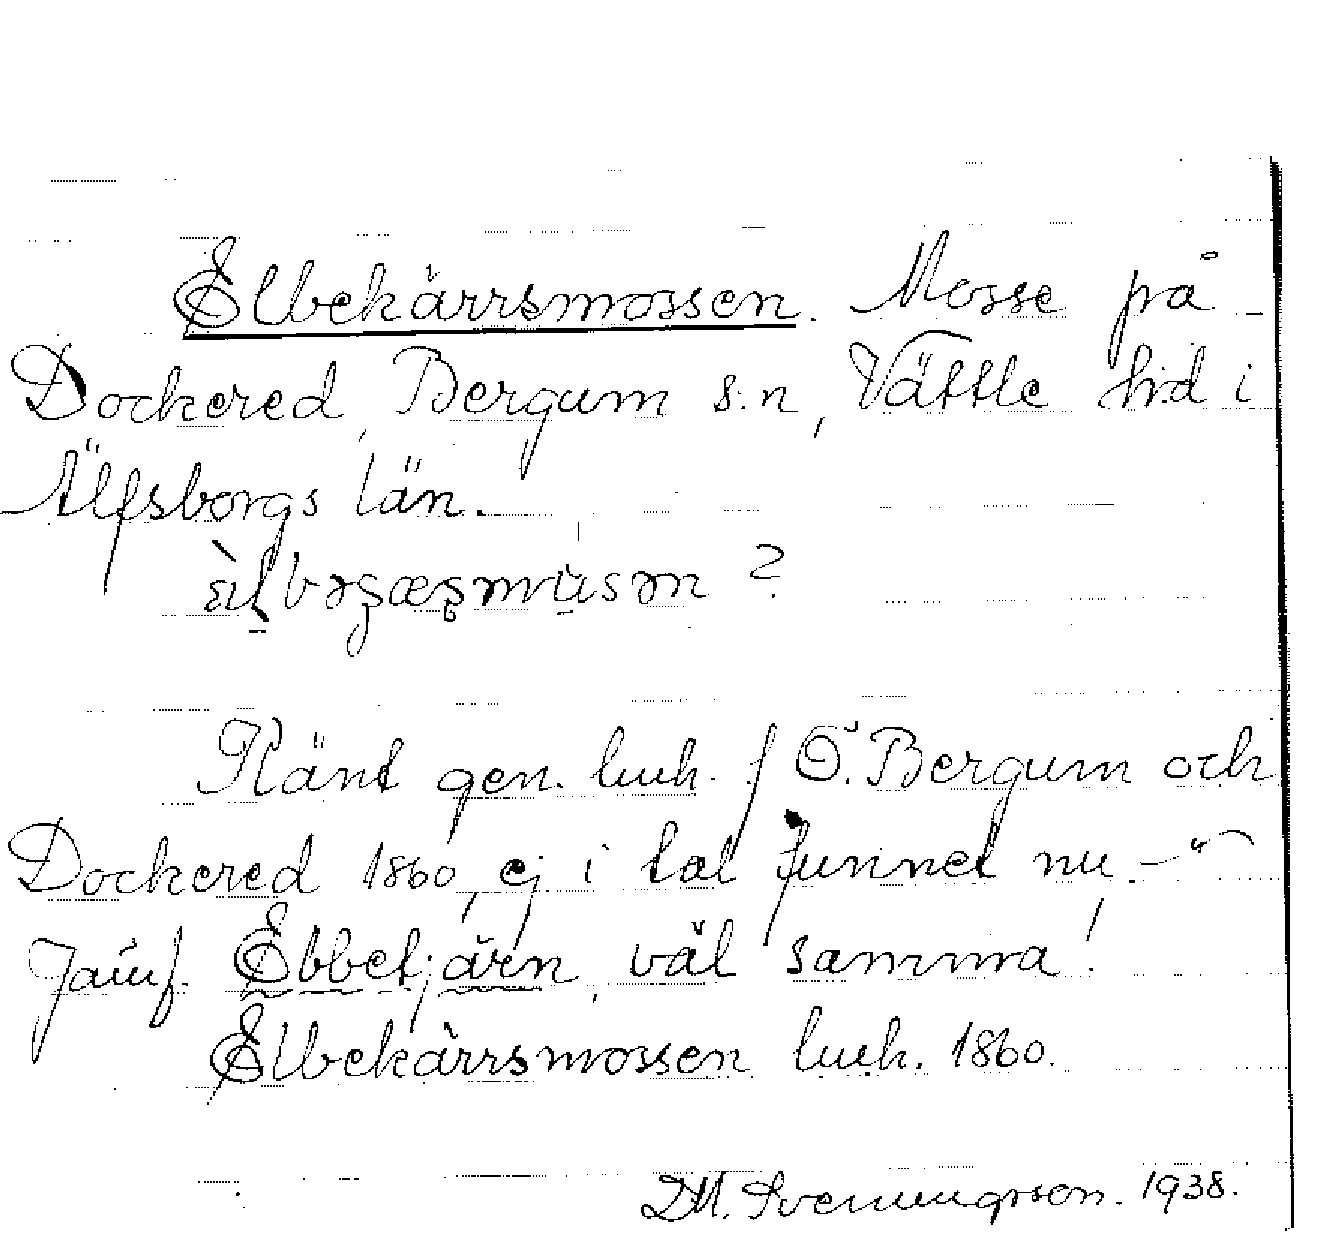 Elbekärrsmossen. Mosse på
Dockered, Bergum s:n, Vättle hd i
Älfsborgs län.
?
Känt gen. lwk. f Ö. Bergum och
Dockered 1860, ej i tal funnet nu. –
Jämf. Ebbetjärn, väl samma!
Elbekärrsmossen lwk. 1860.
D.M. Svenungsson. 1938.